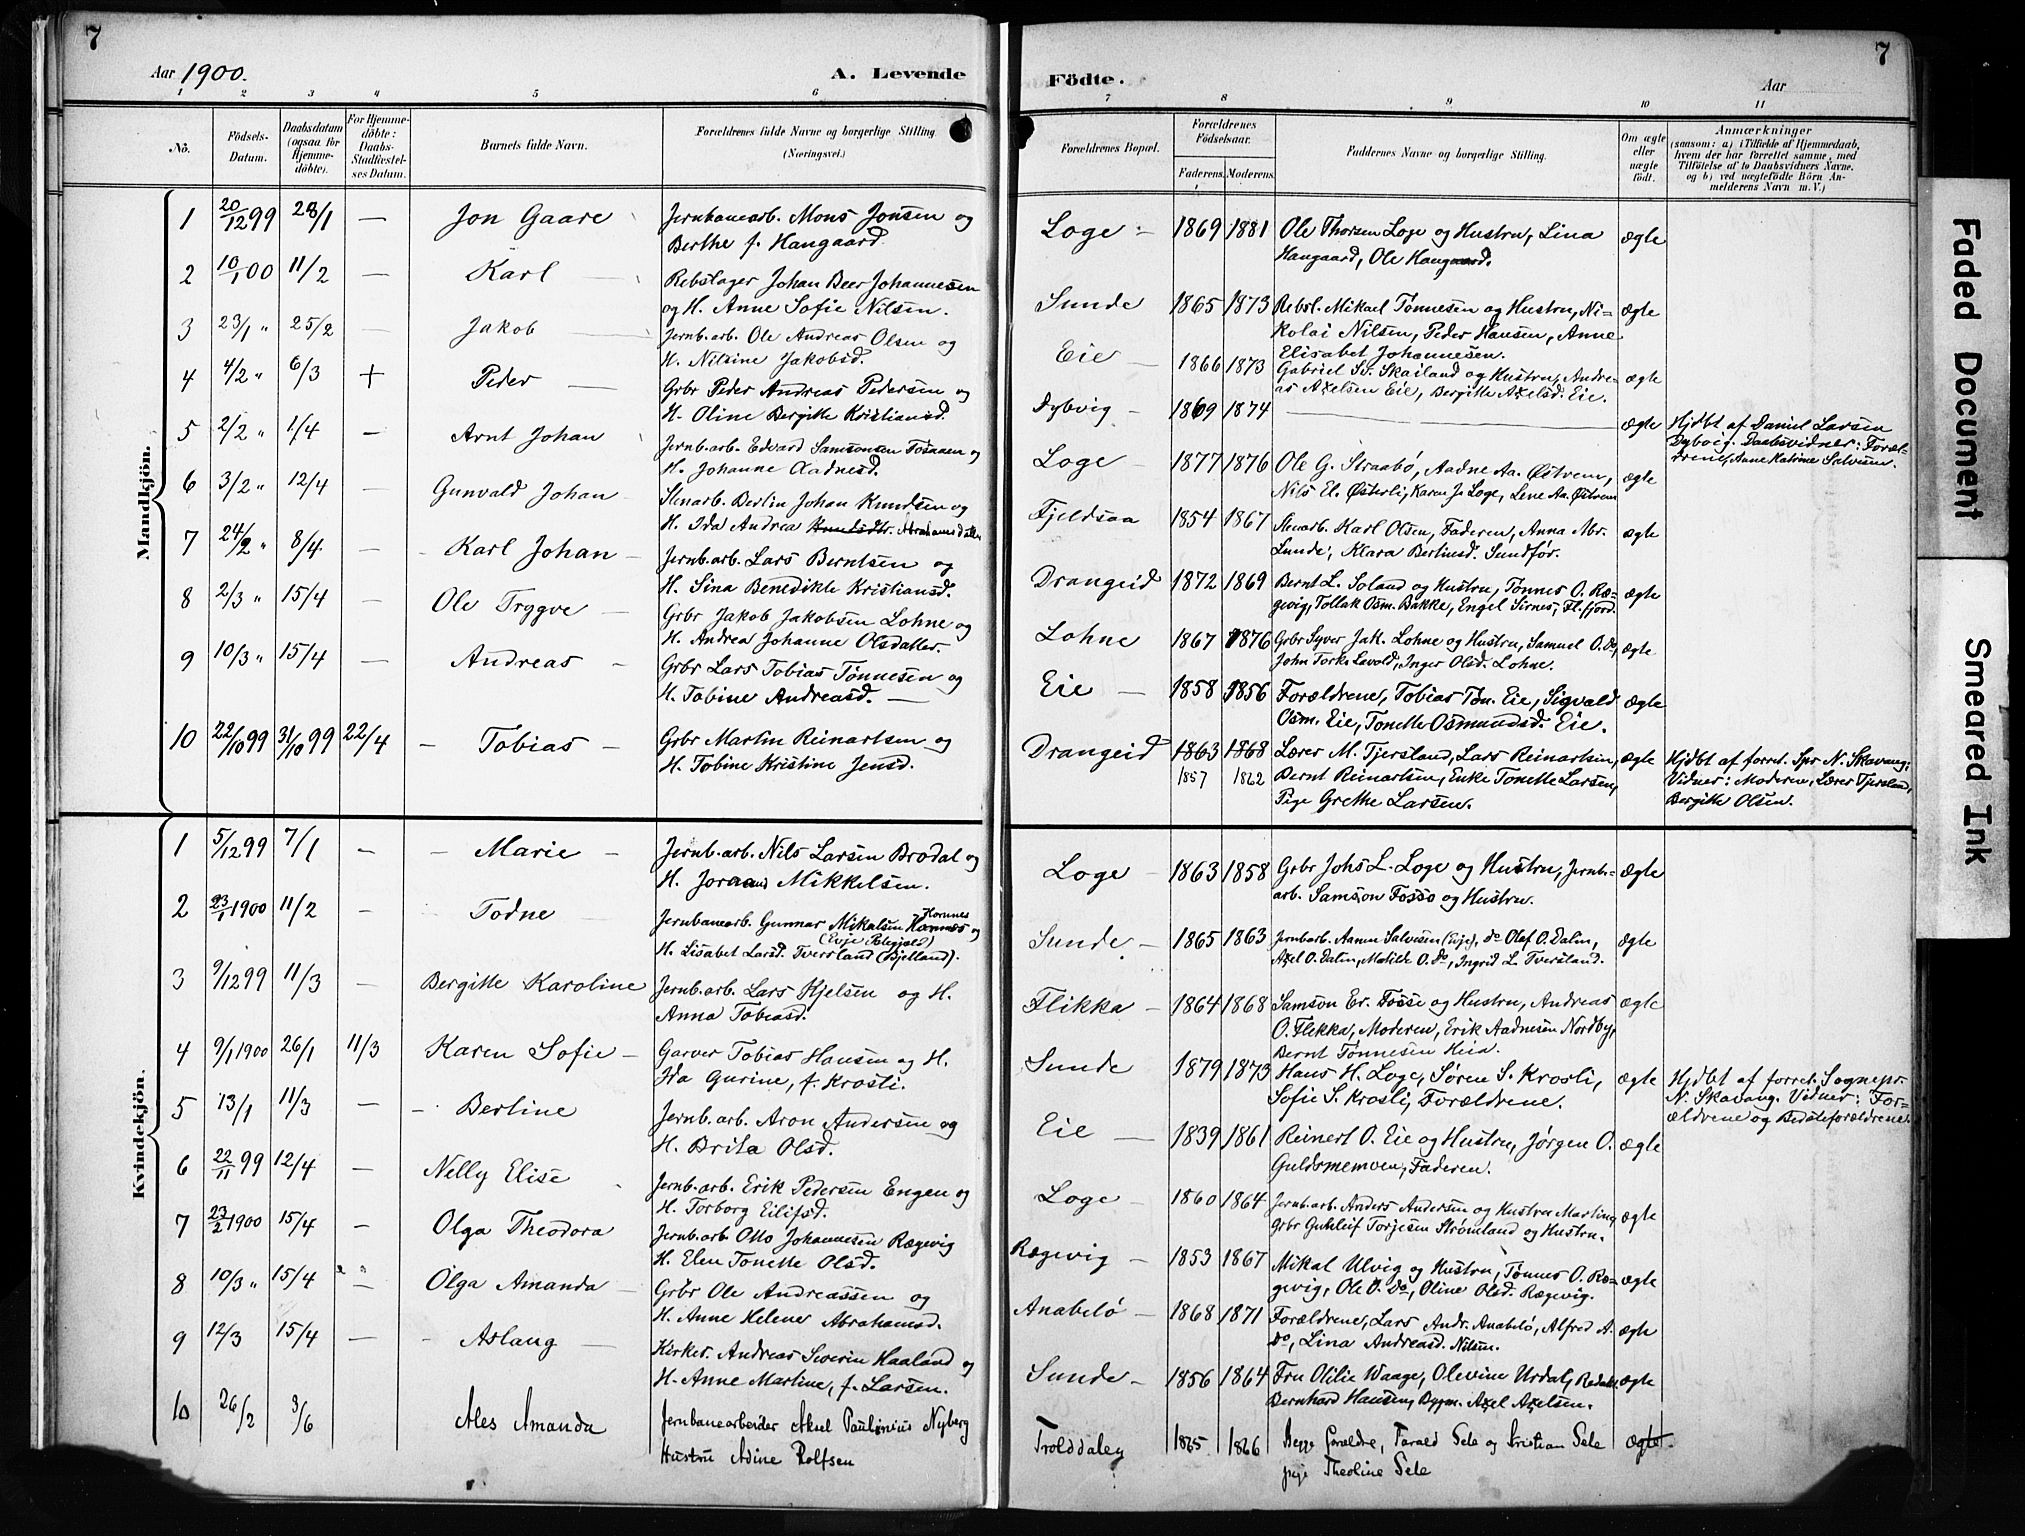 7
Aar 1900.
A. Levende
1 2 3 4 5 6
No.
Födsels-Datum.
Daabsdatum (ogsaa for Hjemme-döbte).
For Hjemme-döbte: Daabs-Stadfæstel-ses Datum.
Barnets fulde Navn.
Forældrenes fulde Navne og borgerlige Stilling (Næringsvei.)
Mandkjön.
1 20/12 99 28/1 — Jon Gaare Jernbanearb. Mons Jonsen og
Berthe f. Haugaard.
2 10/1 00 11/2 — Karl — Rebslager Johan Beer Johannesen
og H. Anne Sofie Nilsen.
3 23/1 " 25/2 — Jakob — Jernb.arb. Ole Andreas Olsen og
H. Nilsine Jakobsd.
4 4/2 " 6/3 + Peder — Grbr Peder Andreas Pedersen og
H. Oline Bergitte Kristiansd.
5 2/2 " 1/4 — Arnt Johan Jernb.arb. Edvard Samsonsen og
H. Johanne Aadnesd.
6 3/2 " 12/4 — Gunvald Johan — Stenarb. Bertin Johan Knudsen og
H. Ida Andrea Abrahamsdatter
7 24/2 " 8/4 — Karl Johan — Jernb.arb. Lars Berntsen og
H. Sina Benedikte Kristiansd.
8 2/3 " 15/4 — Ole Tryggve — Grbr Jakob Jakobsen Lohne og
H. Andrea Johanne Olsdatter
9 10/3 " 15/4 — Andreas — Grbr Lars Tobias Tønnesen og
H. Tobine Andreasd. —
10 22/10 99 31/10 99 22/4 — Tobias — Grbr Martin Reinartsen og
H. Tobine Kristine Jensd.
Kvindekjön.
1 5/12 99 7/1 — — Marie — Jernb.arb. Nils Larsen Brodal og
H. Joraand Mikkelsen.
2 23/1 1900 11/2 — Todne — Jernbanearb. Gunnar Mikalsen Hornnes og
H. Lisabet Larsd. Tversland (Bjelland).
3 9/12 99 11/3 — Bergitte Karoline Jernb.arb. Lars Hjelsen og H.
Anna Tobiasd.
4 9/1 1900 26/1 11/3 Karen Sofie — Garver Tobias Hansen og H.
Ida Gurine, f. Krosli.
5 13/1 11/3 — — Bertine Jernb.arb. Aron Andersen og
H. Brita Olsd.
6 22/11 99 12/4 — Nelly Elise Jernb.arb. Erik Pedersen Engen og
H. Torborg Eilifsd.
7 23/2 1900 15/4 — Olga Theodora Jernb.arb Otto Johannesen Rægevig
H. Elen Tonette Olsd.
8 10/3 " 15/4 — Olga Amanda — Grbr Ole Andreassen og
H. Anne Helene Abrahamsd.
9 12/3 15/4 — — Aslaug — Kirkes. Andreas Severin Haaland og
H. Anne Martine, f. Larsen.
10 26/2 3/6 Ales Amanda Jernbanearbeider Aksel Paulinius Nyberg
Hustru Adine Rolfsen
7
Födte.
Aar
7 8 9 10 11
Forældrenes Bopæl.
Forældrenes Födselsaar.
Faderens. Moderens.
Faddernes Navne og borgerlige Stilling.
Om ægte eller uægte födt.
Anmærkninger
(saasom: a) i Tilfælde af Hjemmedaab,
hvem der har forrettet samme, med
Tilföielse af to Daabsvidners Navne.
og b) ved uægtefödte Börn An-
melderens Navn m. V.)
Loge — 1869 1881 Ole Thorsen Loge og Hustru, Lina ægte
Haugaard, Ole Haugaard.
Sunde 1865 1873 Rebsl. Mikael Tønnesen og Hustru, Ni- ægte
kolai Nilsen, Peder Hansen, Anne
Elisabet Johannesen.
Eie — 1866 1873 Gabriel Skailand og Hustru, Andre- ægte
as Axelsen Eie, Bergitte Axelsd. Eie.
Dybvig — 1869 1874 — ægte Hjdbt af Daniel Larsen
Dybvig. Daabsvidner: Foræl-
drene, Anne Katrine Salvesen.
Loge 1877 1876 Ole G. Straabø, Aadne Aa. Østrem, ægte
Nils El. Østerli, Karen J. Loge, Lene Aa. Østrem
Fjeldsaa 1854 1867 Stenarb. Karl Olsen, Faderen, Anna Abr. ægte
Sunde, Klara Bertinsd. Sundfør.
Drangeid 1872 1869 Bernt L. Soland og Hustru, Tønnes O. Ræ- ægte
gevig, Tollak Osm. Bakke, Engel Sirnes, Fl.fjord.
Lohne 1867 1876 Grbr Syver Jak. Lohne og Hustru, Samuel O. Do, ægte
John Torks Lavold, Inger Olsd. Lohne.
Eie — 1858 1856 Forældrene, Tobias Tøn. Eie, Sigvald ægte
Osm. Eie, Tonette Osmundsd. Eie.
Drangeid 1863 1868 Lærer M. Tjersland, Lars Reinartsen, ægte Hjdbt af forret. Spr N. Skavang;
1857 1862 Bernt Reinartsen, Enke Tonette Larsen, Vidner: Moderen, Lærer Tjersland,
Pige Grethe Larsen. Bergitte Olsen.
Loge — 1863 1858 Grbr Johs L. Loge og Hustru, Jernb.- ægte
arb. Samson Fosso og Hustru.
Sunde — 1865 1863 Jernbarb. Aanen Salvesen (Evje), do Olaf O. Dalen, ægte
Axel O. Dalen, Matilde O. Do, Ingrid L. Tversland.
Flikka — 1864 1868 Samson Er. Fosse og Hustru, Andreas ægte
O. Flikka, Moderen, Erik Aadnesen Nordby,
Bernt Tønnesen Heia.
Sunde 1879 1873 Hans H. Loge, Søren S. Krosli, ægte Hjdbt af forret. Sognepr.
Sofie S. Krosli, Forældrene. N. Skavang. Vidner: For-
ældrene og Bedsteforældrene.
Eie — 1839 1861 Reinert O. Eie og Hustru, Jørgen O. ægte
Guldsmedmoen, Faderen.
Loge — 1860 1864 Jernb.arb. Anders Andersen og Hustru Martine, ægte
Grbr Gunleif Torjesen Strømland og Hustru.
Rægevig — 1853 1867 Mikal Ulvig og Hustru, Tønnes O. Ræ- ægte
gevig, Ole O. Do, Oline Olsd. Rægevig.
Anabelø — 1868 1871 Forældrene, Lars Andr. Anabelø, Alfred A. ægte
Do, Lina Andreasd. Nilsen.
Sunde — 1856 1864 Fru Otilie Waage, Olevine Urdal, Redakt. ægte
Bernhard Hansen, Bygm. Axel Axelsen.
Trolddalen 1865 1866 Begge Forældre, Tarald Sele og Kristian Sele ægte.
pige Theoline Sele
Faded Document
Smeared Ink